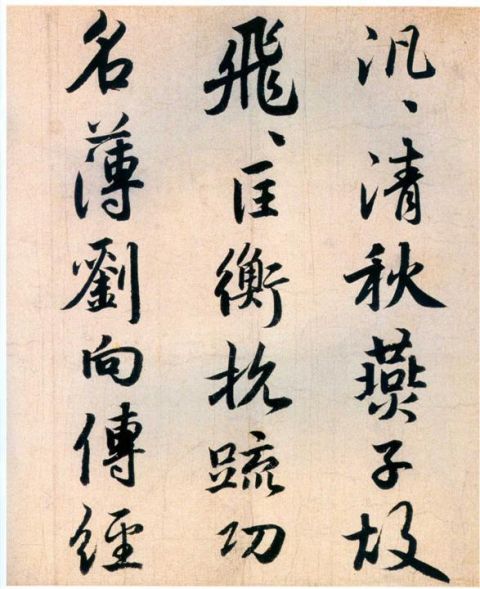 汎、清秋燕子故
飛、匡衡抗䟽功
名薄劉向傳經